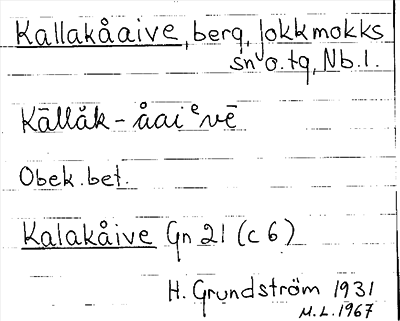 Kallakåaive, berg, Jokkmokks
sn o. tg, Nb. l.
Kāllåk - åaiᵉvē
Obek. bet.
Kalakåive Gn 21 (c 6)
H. Grundström 1931
M. L. 1967